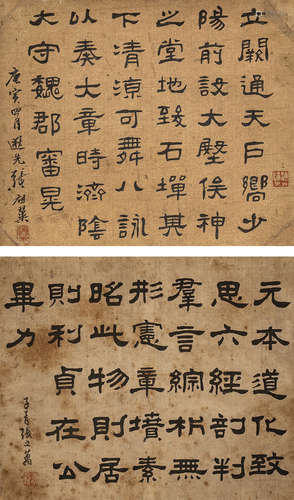 立闕通天戶嚮少
陽前設大壂俟神
之堂地致石墠其
下清涼可舞八詠
以奏大章時濟陰
大守魏郡審晃
庚寅四月逖先張祖翼
元本道化致
思六經剖判
羣言綜析無
形憲章墳素
昭此物則居
則利貞在公
畢力
子青張之萬